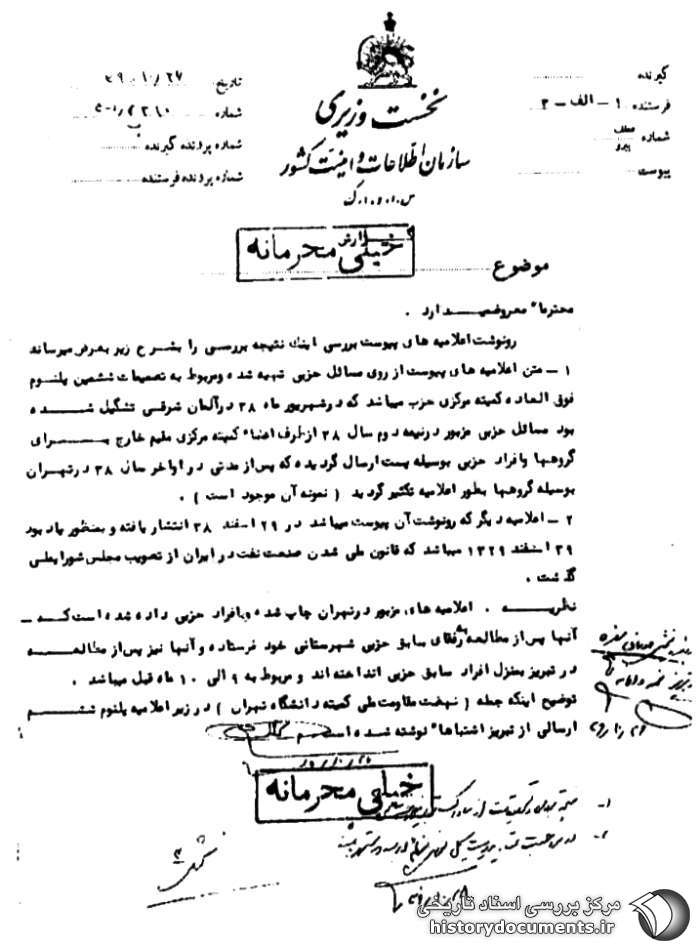 گیرنده
فرستنده ۱ – الف – ۳
شماره عطف پیرو
پیوست
نخست وزیری
سازمان اطلاعات و امنیت کشور
س.ا.و.ا.ک
تاریخ ۳۹/۱۰/۲۷
شماره
شماره پرونده گیرنده
شماره پرونده فرستنده
خیلی محرمانه
موضوع
محترماً معروضمیدارد .
رونوشت اعلامیه های پیوست بررسی اینك نتیجه بررسی را بشرح زیر بعرض میرساند
۱ – متن اعلامیه های پیوست از روی مسائل حزبی تهیه شده ومربوط به تصمیمات ششمین پلنوم
فوق العاده کمیته مرکزی حزب میباشد که درشهریور ماه ۳۸ درآلمان شرقی تشکیل شده
بود مسائل حزبی مزبور درنیمه دوم سال ۳۸ ازطرف اعضاء کمیته مرکزی مقیم خارج برای
گروهها وافراد حزبی بوسیله پست ارسال گردیده که پس از مدتی در اواخر سال ۳۸ درتهران
بوسیله گروهها بطور اعلامیه تکثیر گردید ( نمونه آن موجود است ) .
۲ – اعلامیه دیگر که رونوشت آن پیوست میباشد در ۲۹ اسفند ۳۸ انتشار یافته و بمنظور یاد بود
۲۹ اسفند ۱۳۲۹ میباشد که قانون ملی شدن صنعت نفت در ایران از تصویب مجلس شورایملی
گذشت .
نظریه . اعلامیه های مزبور درتهران چاپ شده وبافراد حزبی داده شده است که –
آنها پس از مطالعه به رفقای سابق حزبی شهرستانی خود فرستاده و آنها نیز پس از مطالعه
در تبریز بمنزل افراد سابق حزبی انداخته اند و مربوط به ۹ الی ۱۰ ماه قبل میباشد .
توضیح اینکه جمله ( نهضت مقاومت ملی کمیته دانشگاه تهران ) در زیر اعلامیه پلنوم ششم
ارسالی از تبریز اشتباهاً نوشته شده است
خیلی محرمانه
۱-
۲-
مرکز بررسی اسناد تاریخی
historydocuments.ir